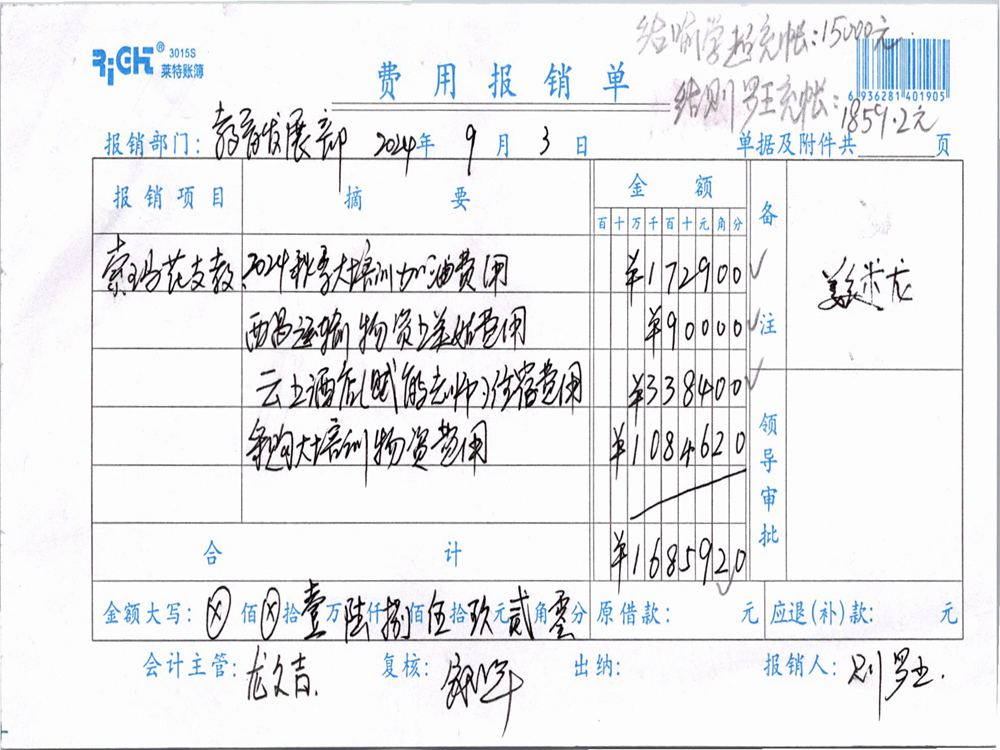 结喻学超充帐:15000元
RiCHT® 3015S
莱特账簿
费用报销单
结则罗王充帐:1859.2元
6 936281 401905
报销部门: 教育发展部 2024年 9月 3日 单据及附件共 页
报销项目 摘要 金额 备注
百十万千百十元角分
索玛花支教 2024秋季大培训加油费用 ¥172900
西昌运输物资上美姑费用 ¥90000
云上酒店(赋能老师)住宿费用 ¥338400
采购大培训物资费用 ¥1084620
领导审批
合计 ¥1685920
金额大写: ⊗佰⊗拾壹万陆仟捌佰伍拾玖元贰角零分 原借款: 元 应退(补)款: 元
会计主管: 龙文吉. 复核: 出纳: 报销人: 则罗王.